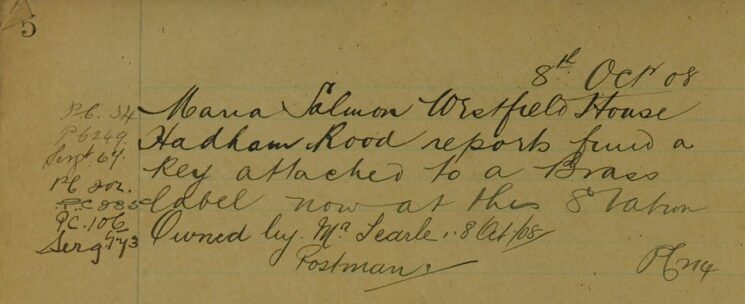 5
8th Octr 08
P.C. 34 Maria Salmon Westfield House
PC 249 Hadham Road reports fund a
Sergt. 64. Key attached to a Brass
PC 202. label now at this Station
P.C 285
P.C. 106 Owned by. Mr Searle .. 8 Oct/08
Sergt 93 Postman.
PC 114